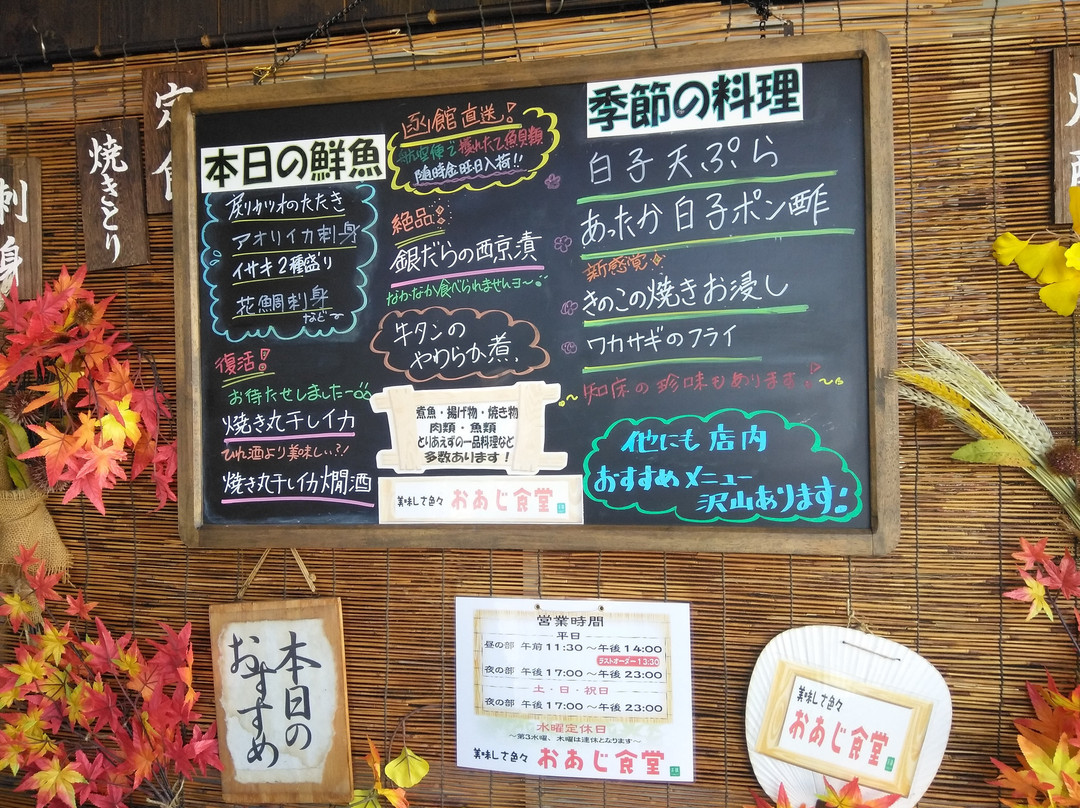 定食
焼きとり
刺身
本日の鮮魚
戻りカツオのたたき
アオリイカ刺身
イサキ2種盛り
花鯛刺身
など〜
復活!
お待たせしました〜
焼き丸干しイカ
ひれ酒より美味しい?!
焼き丸干しイカ燗酒
函館直送!
航空便で獲れたて魚貝類
随時金曜日入荷!!
絶品!
銀だらの西京漬
なかなか食べられませんヨ〜
牛タンの
やわらか煮
煮魚・揚げ物・焼き物
肉類・魚類
とりあえずの一品料理など
多数あります!
美味しさ色々 おあじ食堂
季節の料理
白子天ぷら
あったか白子ポン酢
新感覚!
きのこの焼きお浸し
ワカサギのフライ
知床の珍味もあります!
他にも店内
おすすめメニュー
沢山あります!
本日の
おすすめ
営業時間
平日
昼の部 午前11:30〜午後14:00
ラストオーダー13:30
夜の部 午後17:00〜午後23:00
土・日・祝日
夜の部 午後17:00〜午後23:00
水曜定休日
〜第3水曜、木曜は連休となります〜
美味しさ色々 おあじ食堂
美味しさ色々
おあじ食堂